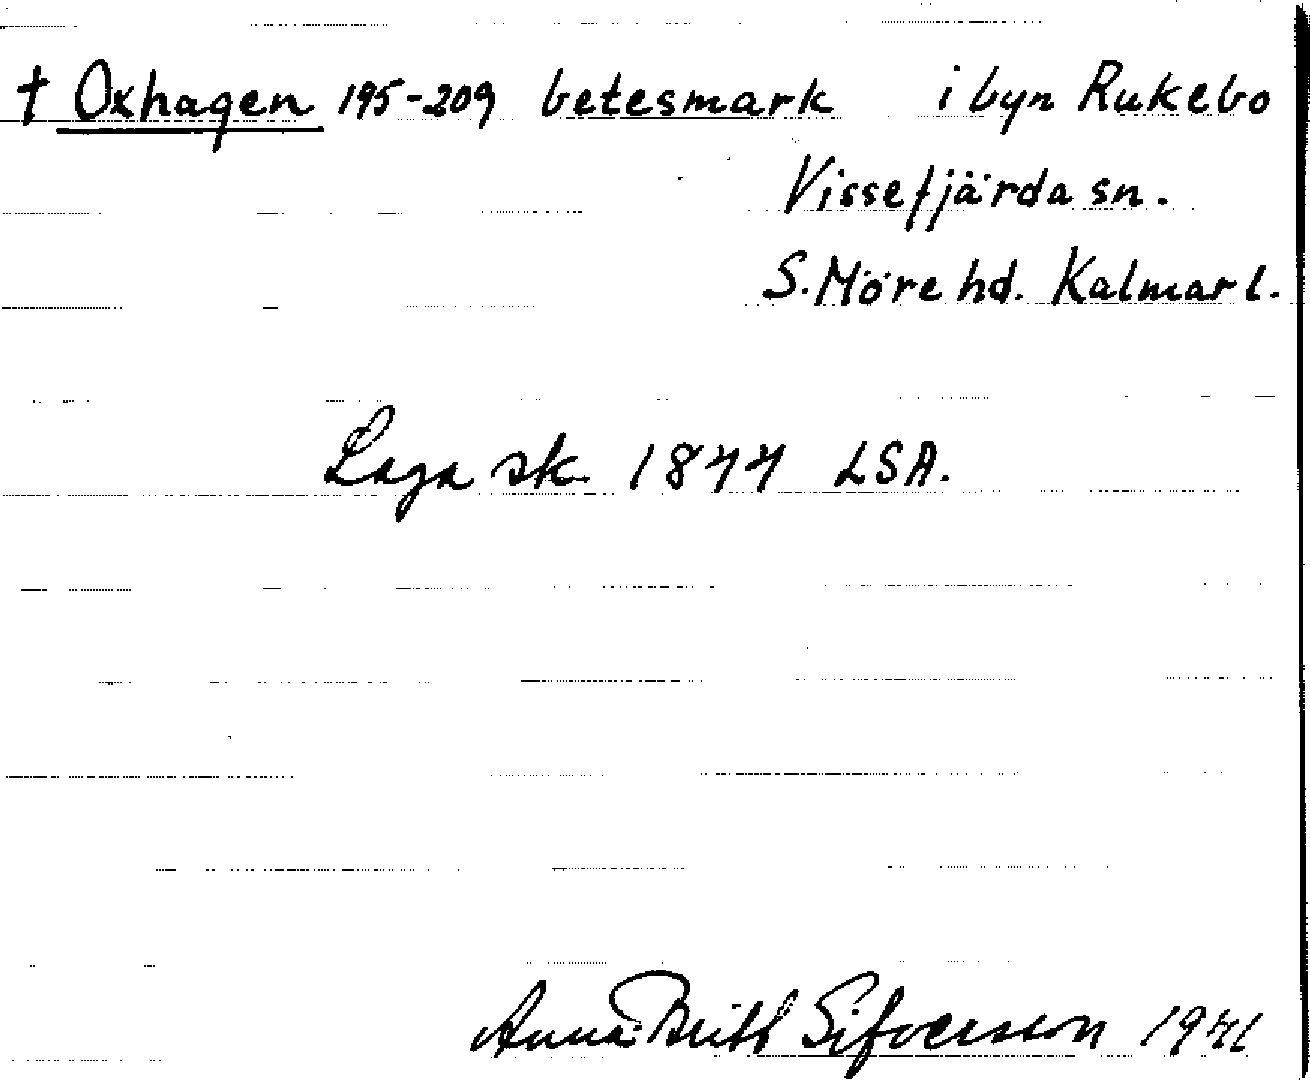 † Oxhagen 195-209 betesmark i byn Rukebo
Vissefjärda sn.
S. Möre hd. Kalmar l.
Laga sk. 1844 LSA.
Anna-Britt Sifversson 1941